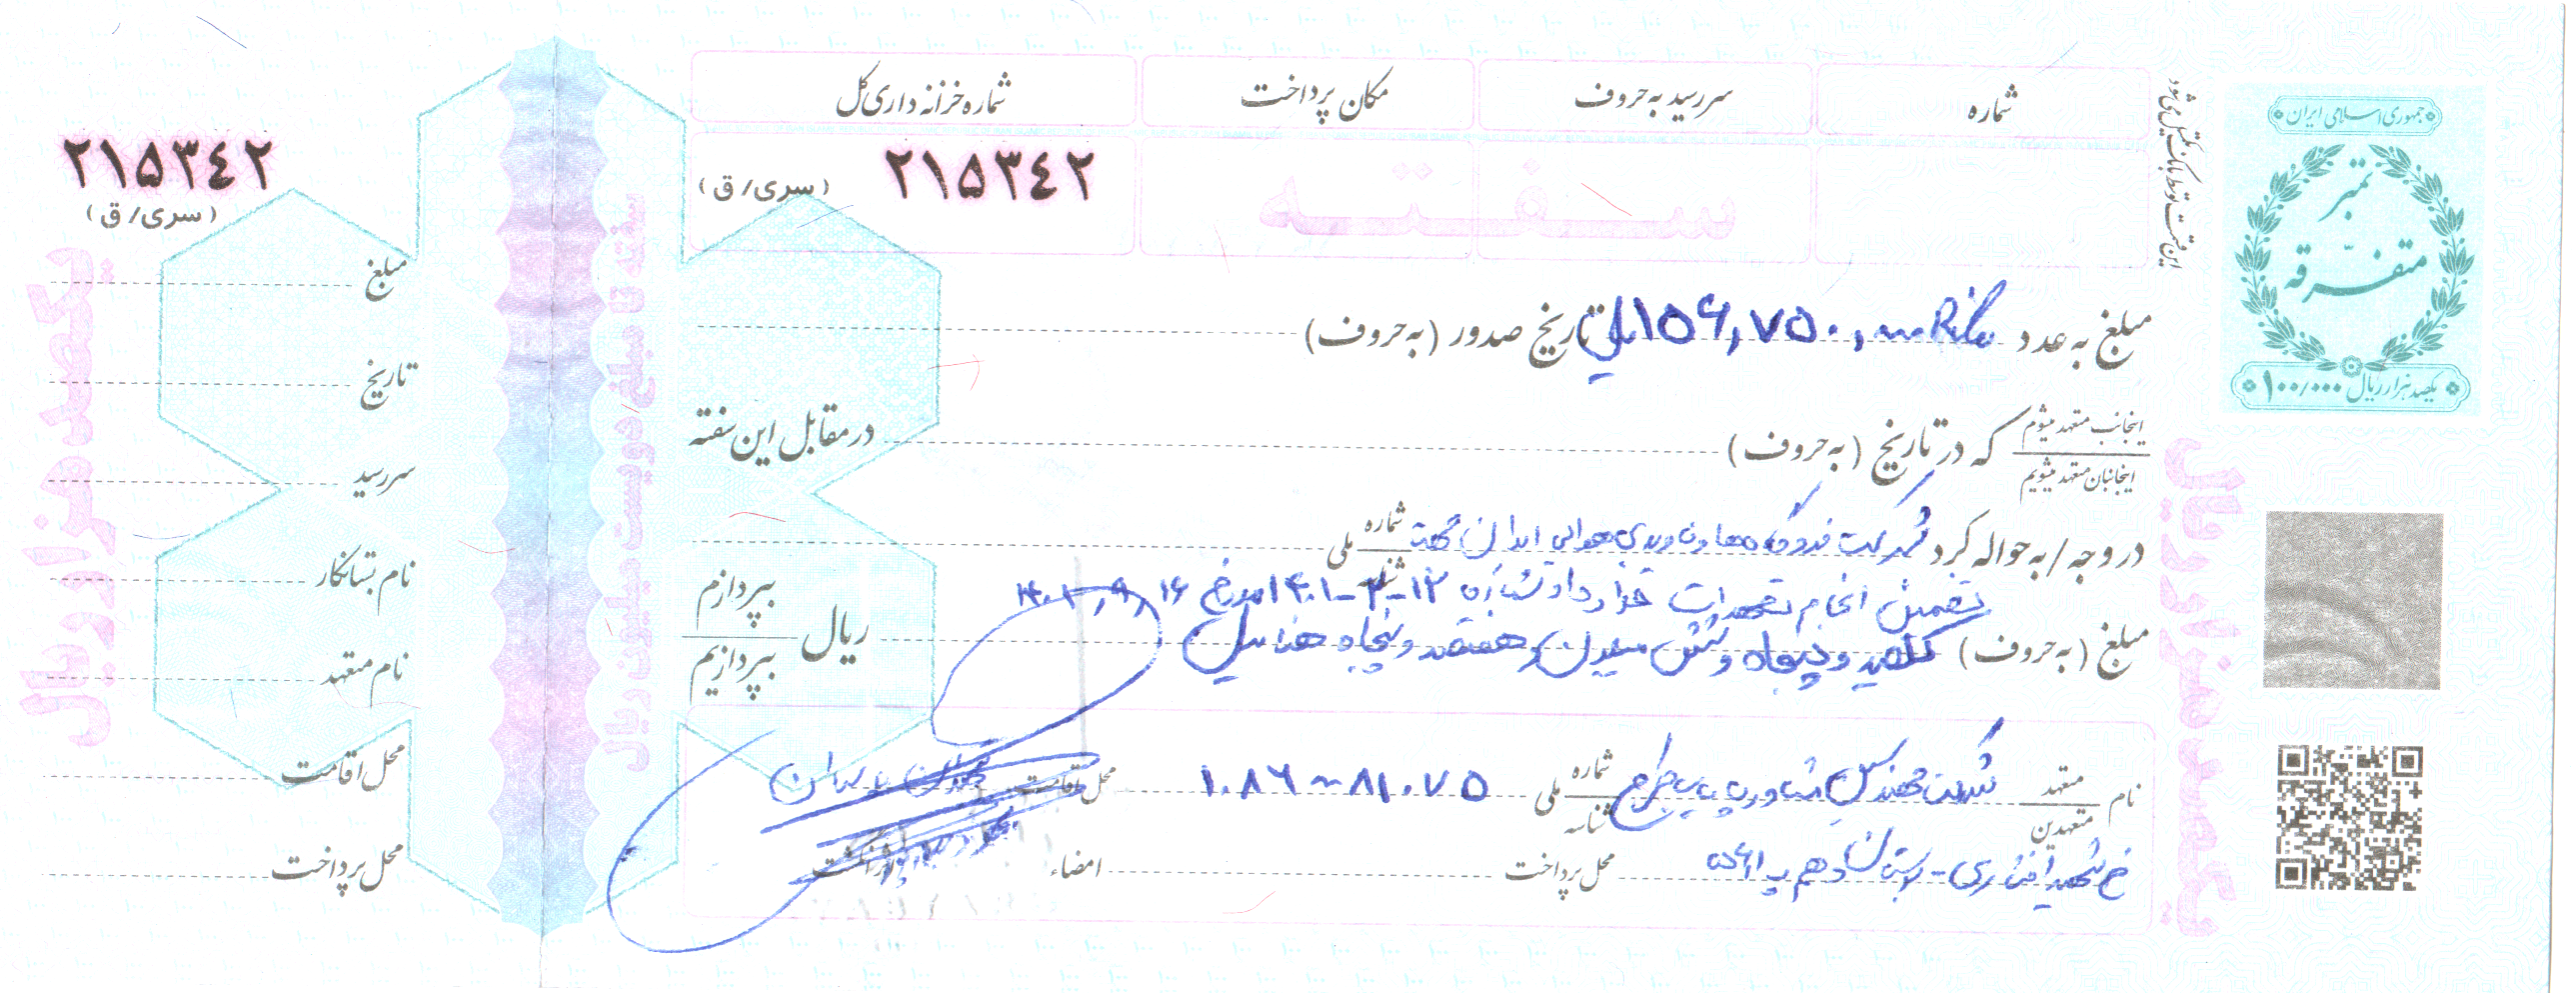 جمهوری اسلامی ایران
تمبر
متفرقه
یکصد هزار ریال ۱۰۰/۰۰۰
این قسمت توسط بانک تکمیل می شود
شماره
سررسید به حروف
مکان پرداخت
شماره خزانه داری کل
سفته
۲۱۵۳۴۲ (سری/ ق)
۲۱۵۳۴۲
(سری/ ق)
یکصد هزار ریال
سفته تا مبلغ دویست میلیون ریال
یکصد هزار ریال
مبلغ به عدد ۱۵۶,۷۵۰,۰۰۰ تاریخ صدور (به حروف)
اینجانب متعهد میشوم
اینجانبان متعهد میشویم
که در تاریخ (به حروف) در مقابل این سفته
در وجه / به حواله کرد شرکت فرودگاه ها و ناوبری هوایی ایران جهت شماره ملی
شناسه
تضمین انجام تعهدات قرارداد شماره ۱۲-۳-۱۴۰۱ مورخ ۱۴۰۱,۹,۱۶
مبلغ (به حروف) یکصد و پنجاه و شش میلیون و هفتصد و پنجاه هزار ریال ریال
بپردازم
بپردازیم
نام متعهد
متعهدین
شرکت مهندسین مشاور شماره ملی
شناسه
۱۰۸۶۰۰۸۱۰۷۵ محل اقامت تهران
خ شهید افشاری - بوستان دهم پ محل پرداخت امضاء اثر انگشت
مبلغ
تاریخ
سررسید
نام بستانکار
نام متعهد
محل اقامت
محل پرداخت